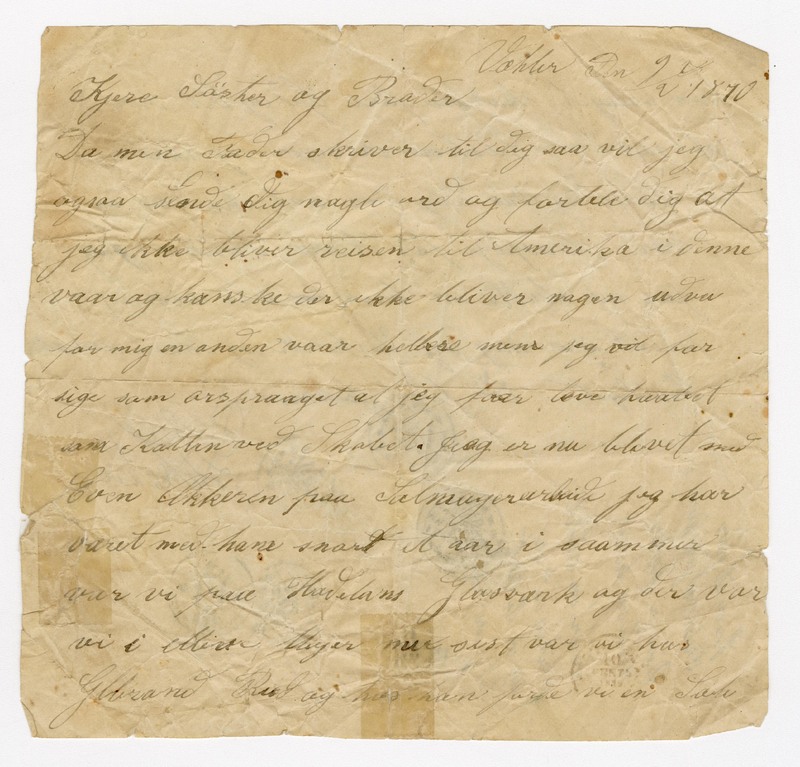 den 9 1870
Kjere Söster og Broder
Da min Fader skriver til dig saa vil jeg
ogsaa sende dig nogle ord og fortele dig at
jeg ikke bliver reisen til Amerika i denne
vaar og kanske der ikke bliver nogen udvu
for mig en anden vaar hellere menn jeg vil for
sige som orspraaget at jeg faar love
om Katten ved Skabet. Jeg er nu blevet med
Even paa jeg har
varet med ham snart et aar i saammer
var vi paa Hadelans Glasværk og der var
vi i uger sist var vi hus
Gulbrand og hos han vi en